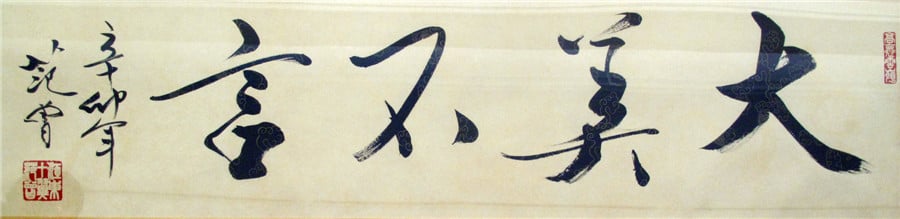 大美不言
辛卯年
范曾